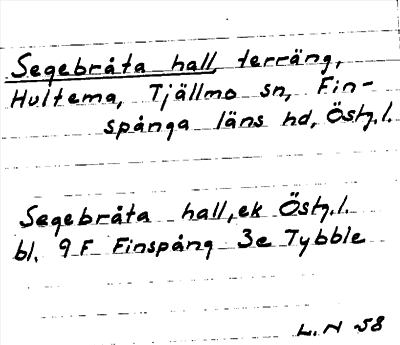 Segebråta hall, terräng,
Hultema, Tjällmo sn, Fin-
spånga läns hd, Östg.l.
Segebråta hall, ek Östg.l.
bl. 9 F Finspång 3e Tybble
L. N 58